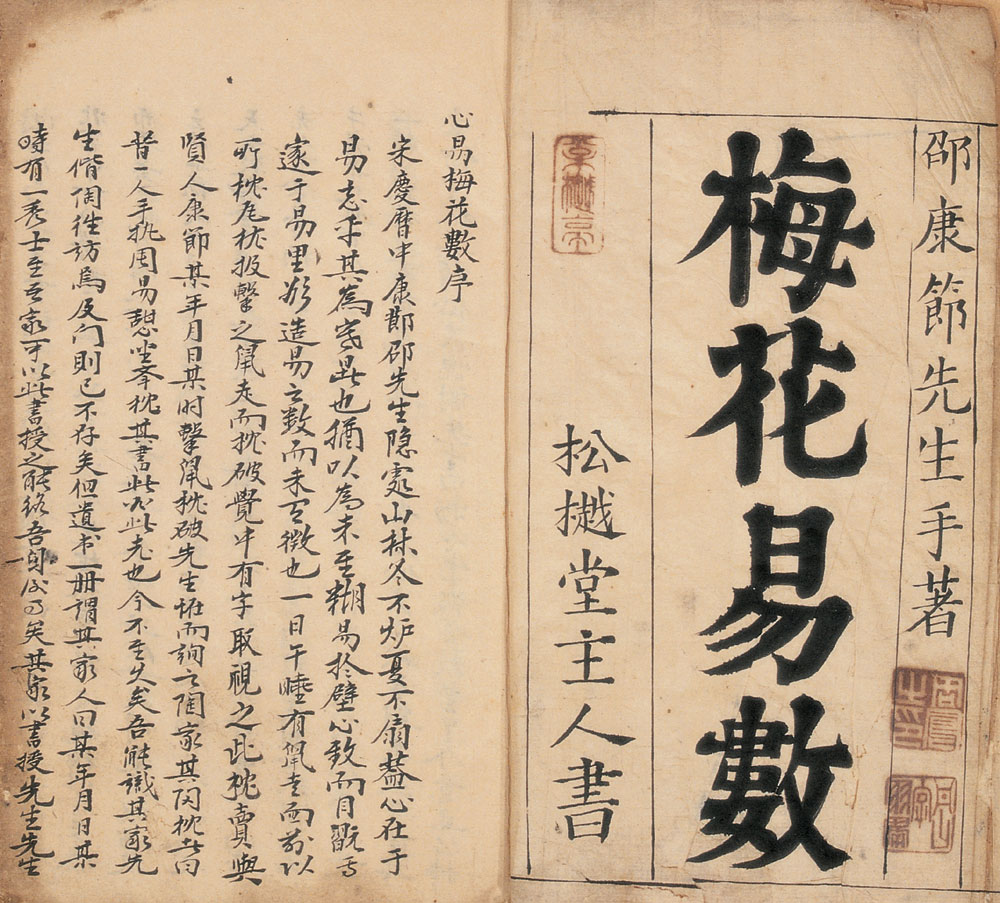 邵康節先生手著
梅花易數
松樾堂主人書
心易梅花數序
宋慶曆中康節邵先生隱處山林冬不炉夏不扇蓋心在于
易忘乎其為寒暑也猶以為未至糊易於壁心致而目翫焉
邃于易里欲造易之數而未有徵也一日午睡有鼠走而前以
所枕瓦枕投擊之鼠走而枕破覺中有字取視之此枕賣與
賢人康節某年月日某时擊鼠枕破先生怪而詢之陶家其
枕者曰
昔一人手执周易憩坐举枕其書此必此老也今不至久矣吾能識其家先
生偕徃访焉及门則已不存矣但遺书一册謂其家人曰某年月日某
時有一秀士至吾家可以此書授之能終吾身後事矣其家以書授先生先生